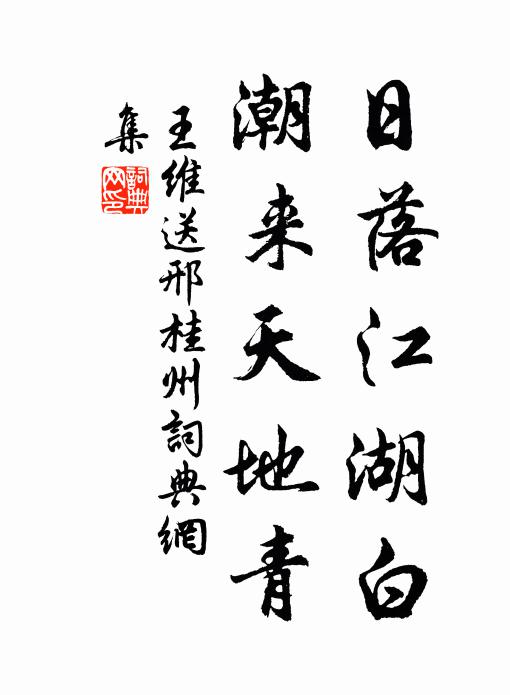 日落江湖白
潮来天地青
王维送邢桂州詞典網
集
詞典
网印